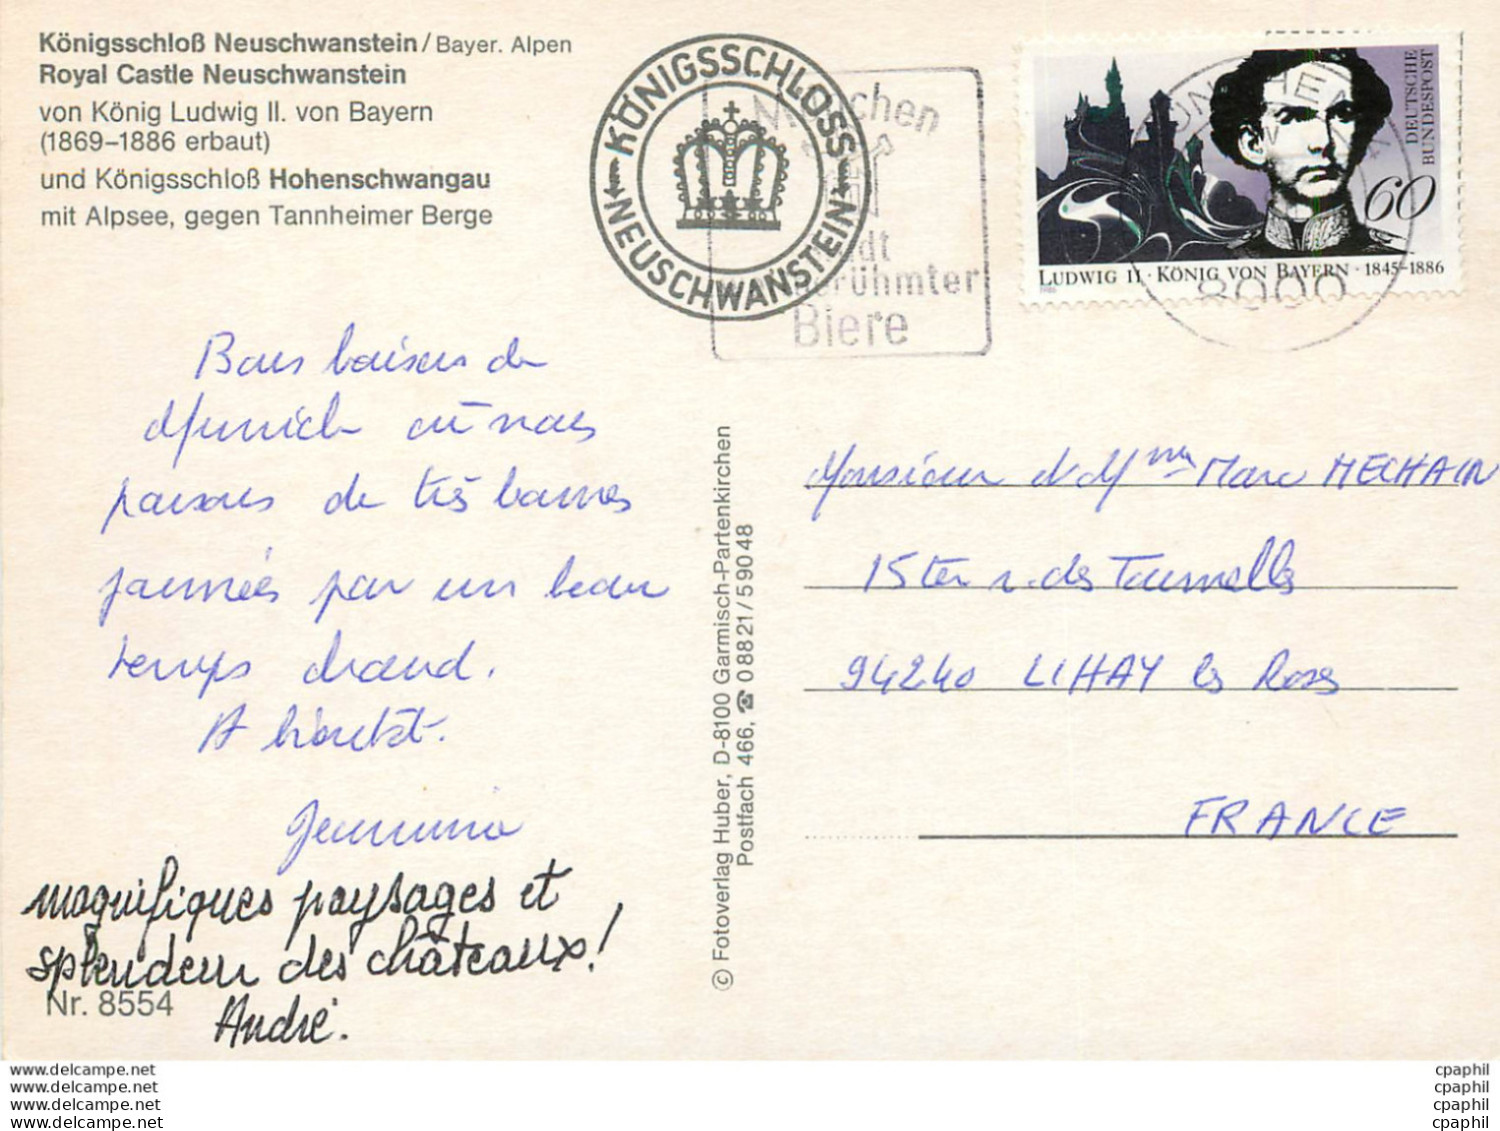 Königsschloß Neuschwanstein / Bayer. Alpen
Royal Castle Neuschwanstein
von König Ludwig II. von Bayern
(1869–1886 erbaut)
und Königsschloß Hohenschwangau
mit Alpsee, gegen Tannheimer Berge
KÖNIGSSCHLOSS
NEUSCHWANSTEIN
München
Stadt
berühmter
Biere
MÜNCHEN
8000
DEUTSCHE
BUNDESPOST
60
LUDWIG II · KÖNIG VON BAYERN · 1845–1886
Bons baisers de
Munich où nous
passons de très bonnes
journées par un beau
temps chaud.
A bientôt.
magnifiques paysages et
splendeur des châteaux!
André.
Nr. 8554
© Fotoverlag Huber, D-8100 Garmisch-Partenkirchen
Postfach 466, ☎ 08821/59048
Monsieur et Mme Marc MECHAIN
15 ter r. des Tournelles
94240 L'HAY les Roses
FRANCE
www.delcampe.net
www.delcampe.net
www.delcampe.net
www.delcampe.net
cpaphil
cpaphil
cpaphil
cpaphil